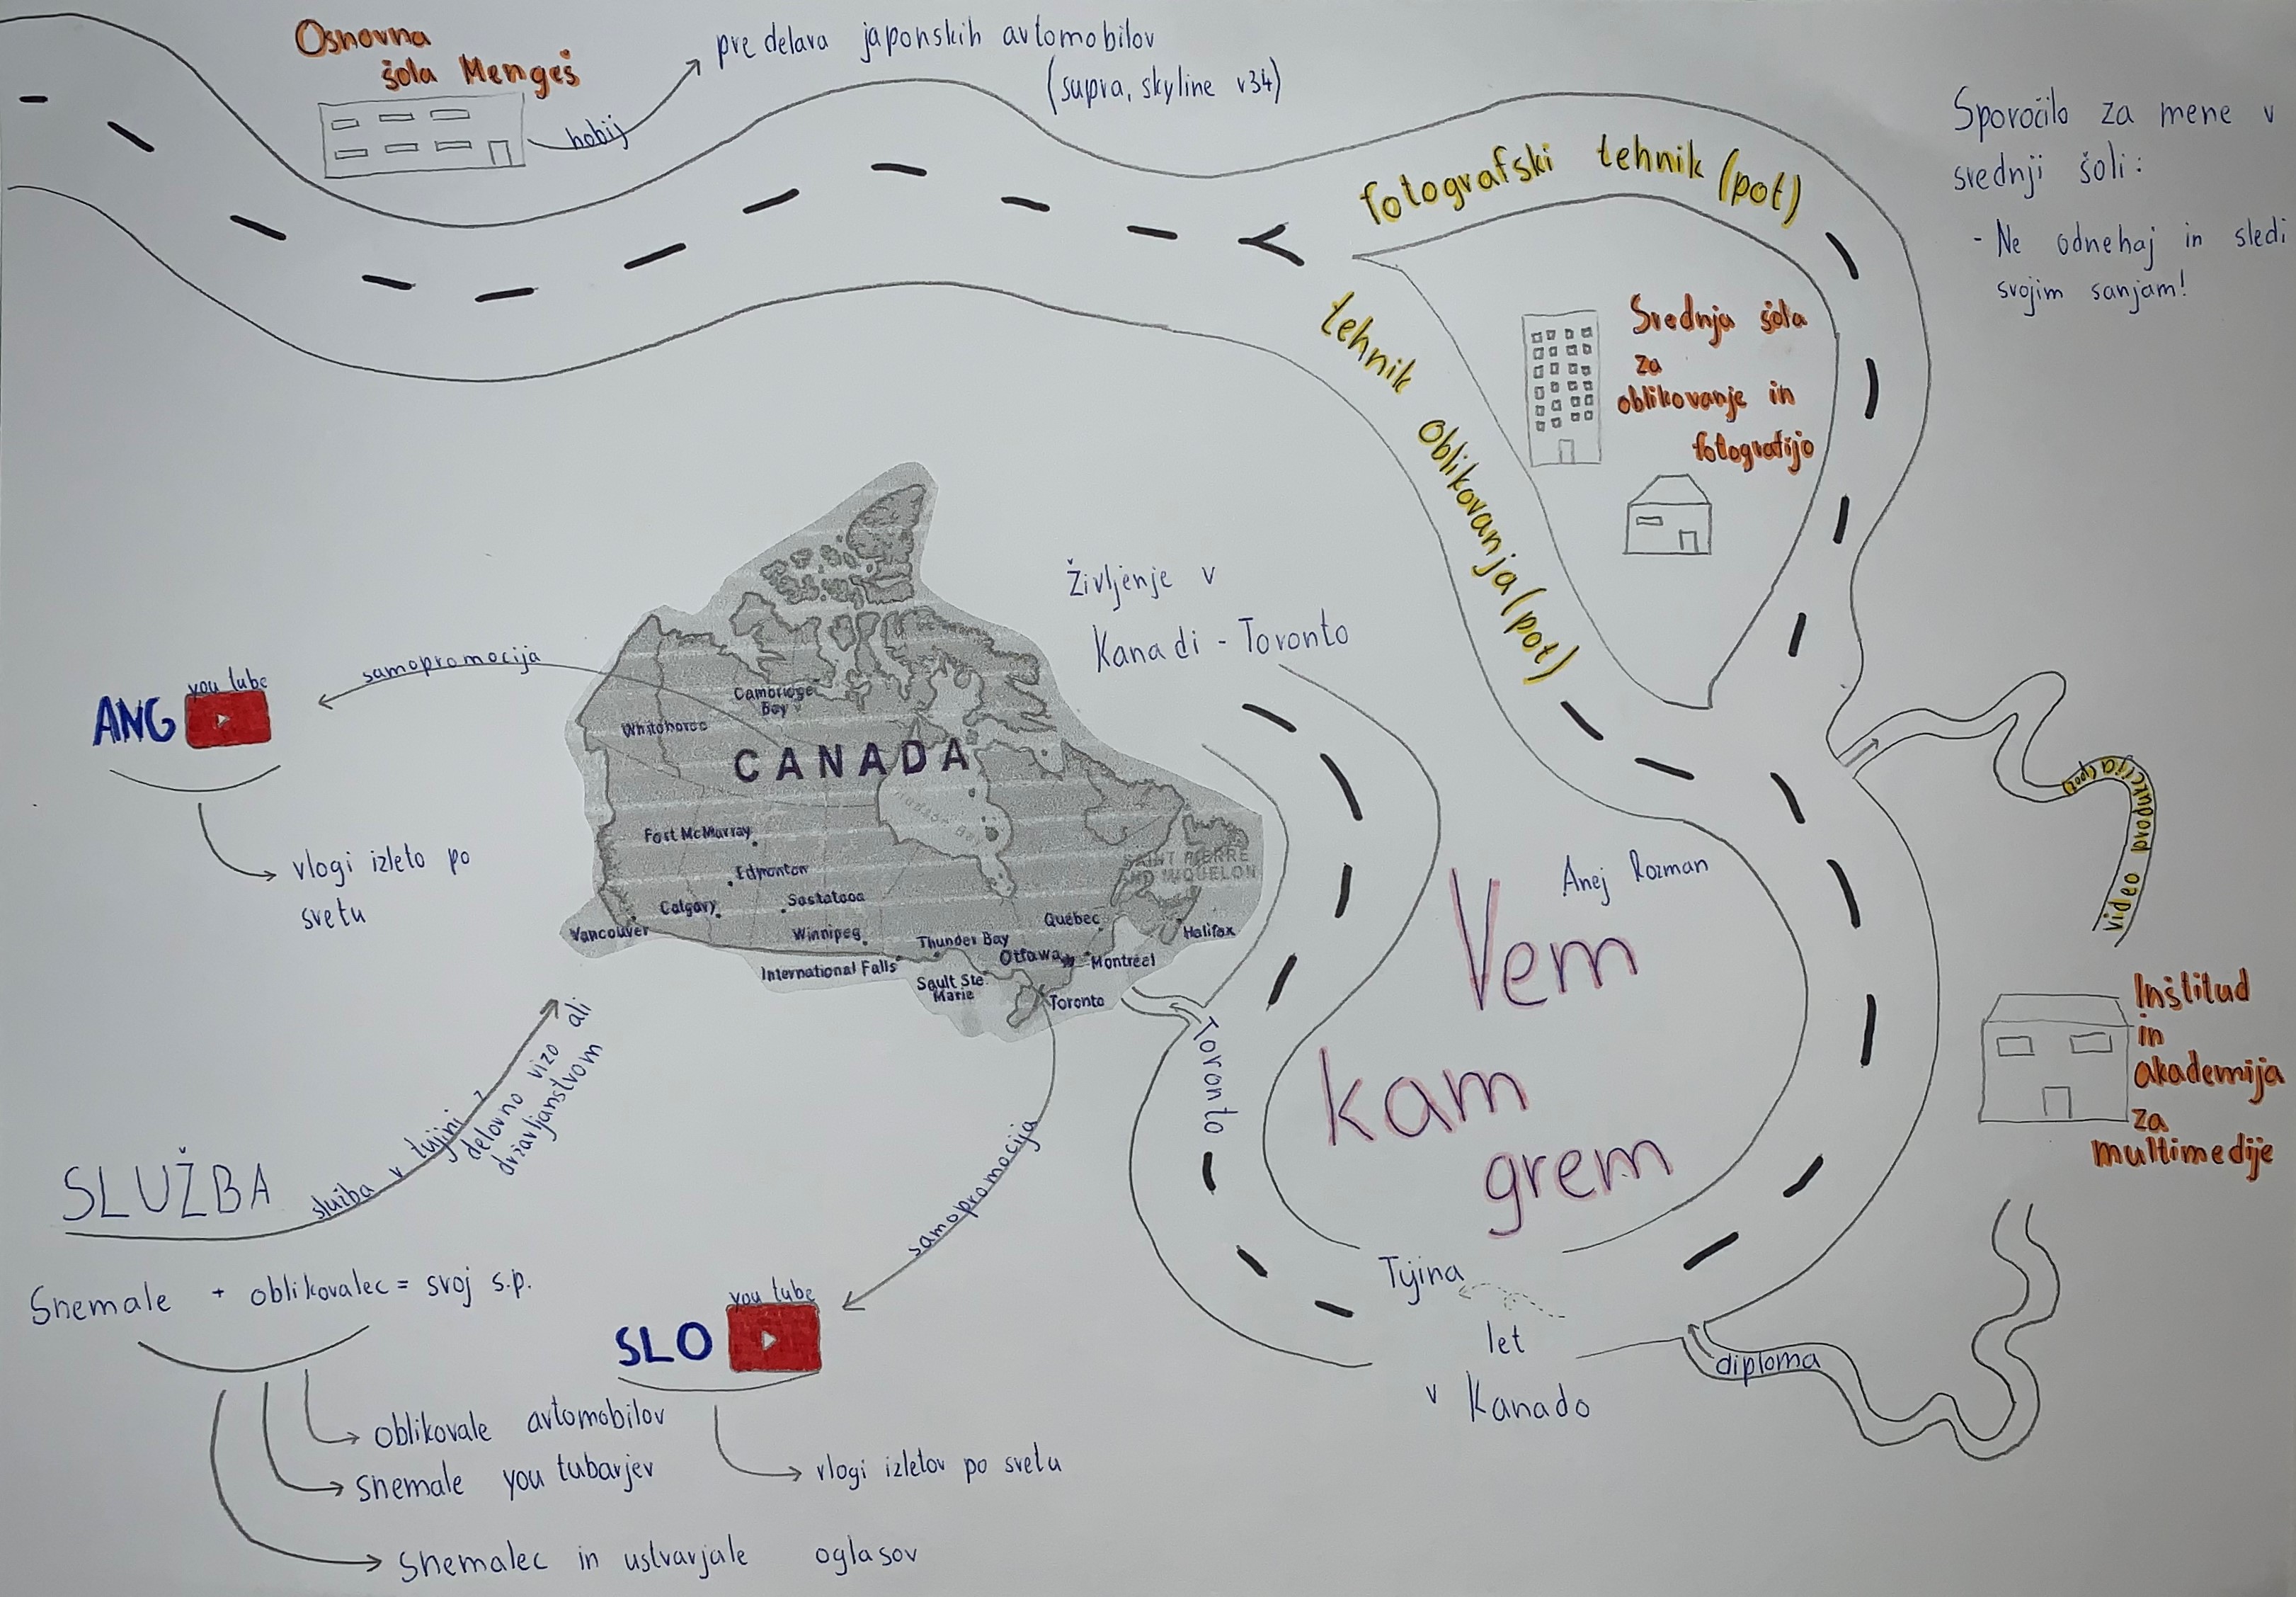 Osnovna
šola Mengeš
hobij
predelava japonskih avtomobilov
(supra, skyline v34)
fotografski tehnik (pot)
tehnik oblikovanja (pot)
Sporočilo za mene v
srednji šoli:
- Ne odnehaj in sledi
svojim sanjam!
Srednja šola
za
oblikovanje in
fotografijo
video produkcija (pot)
Inštitud
in
akademija
za
multimedije
diploma
Anej Rozman
Vem
kam
grem
Tujina
let
v Kanado
Toronto
Življenje v
Kanadi - Toronto
Cambridge
Bay
Whitehorse
CANADA
Hudson Bay
Fort McMurray
Edmonton
Calgary
Saskatoon
Vancouver
Winnipeg
International Falls
Thunder Bay
Sault Ste.
Marie
Ottawa
Québec
Montréal
Toronto
Halifax
SAINT PIERRE
AND MIQUELON
samopromocija
ANG
you tube
vlogi izleto po
svetu
SLUŽBA
služba v tujini z
delovno vizo ali
državljanstvom
Snemale + oblikovalec = svoj s.p.
oblikovale avtomobilov
snemale you tubarjev
snemalec in ustvarjale oglasov
samopromocija
SLO
you tube
vlogi izletov po svetu